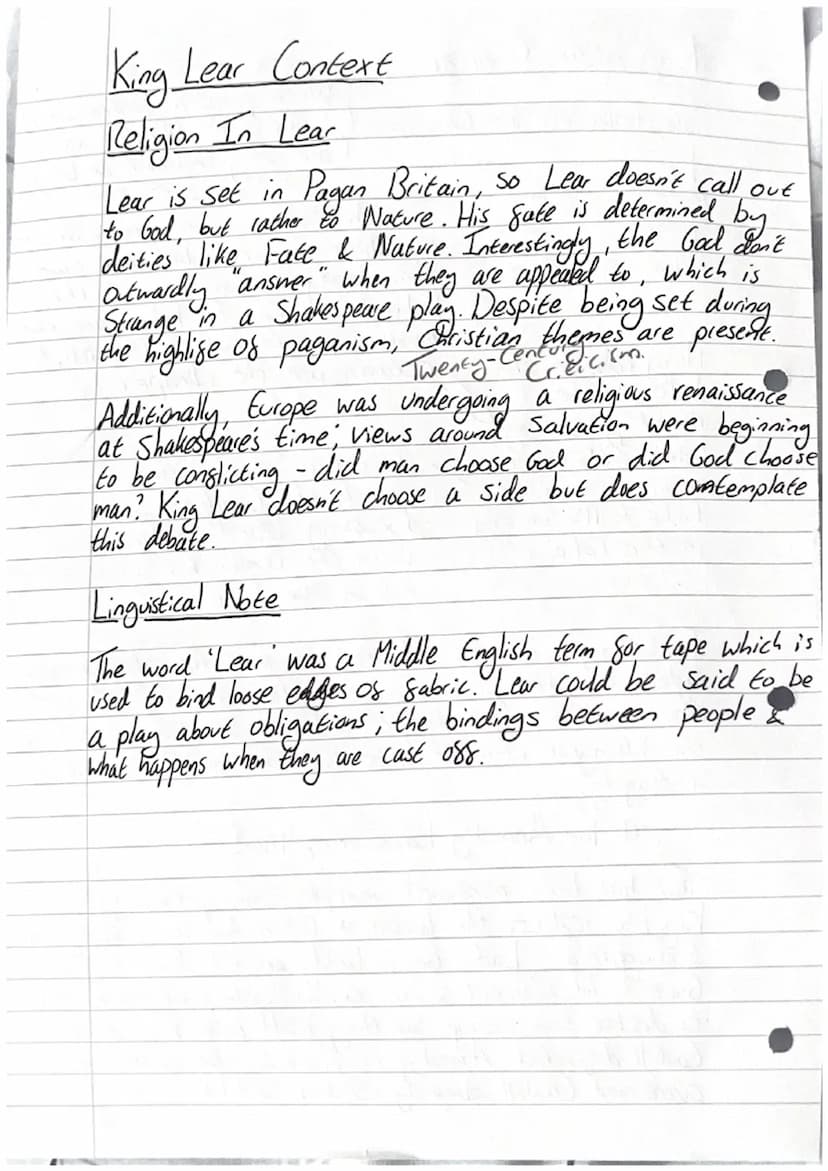 King Lear Context
Religion In Lear
Lear is set in Pagan Britain, so Lear doesn't call out
to God, but rather to Nature. His fate is determined by
deities like Fate & Nature. Interestingly, the God don't
outwardly "answer" when they are appealed to, which is
Strange in a Shakespeare play. Despite being set during
the highlife of paganism, Christian themes are present.
Twenty-Century
Criticism.
Additionally, Europe was undergoing a religious renaissance
at Shakespeare's time; views around Salvation were beginning
to be conflicting - did man choose God or did God choose
man? King Lear doesn't choose a side but does comtemplate
this debate.
Linguistical Note
The word 'Lear' was a Middle English term for tape which is
used to bind loose edges of fabric. Lear could be said to be
a play about obligations; the bindings between people &
what happens when they are cast off.